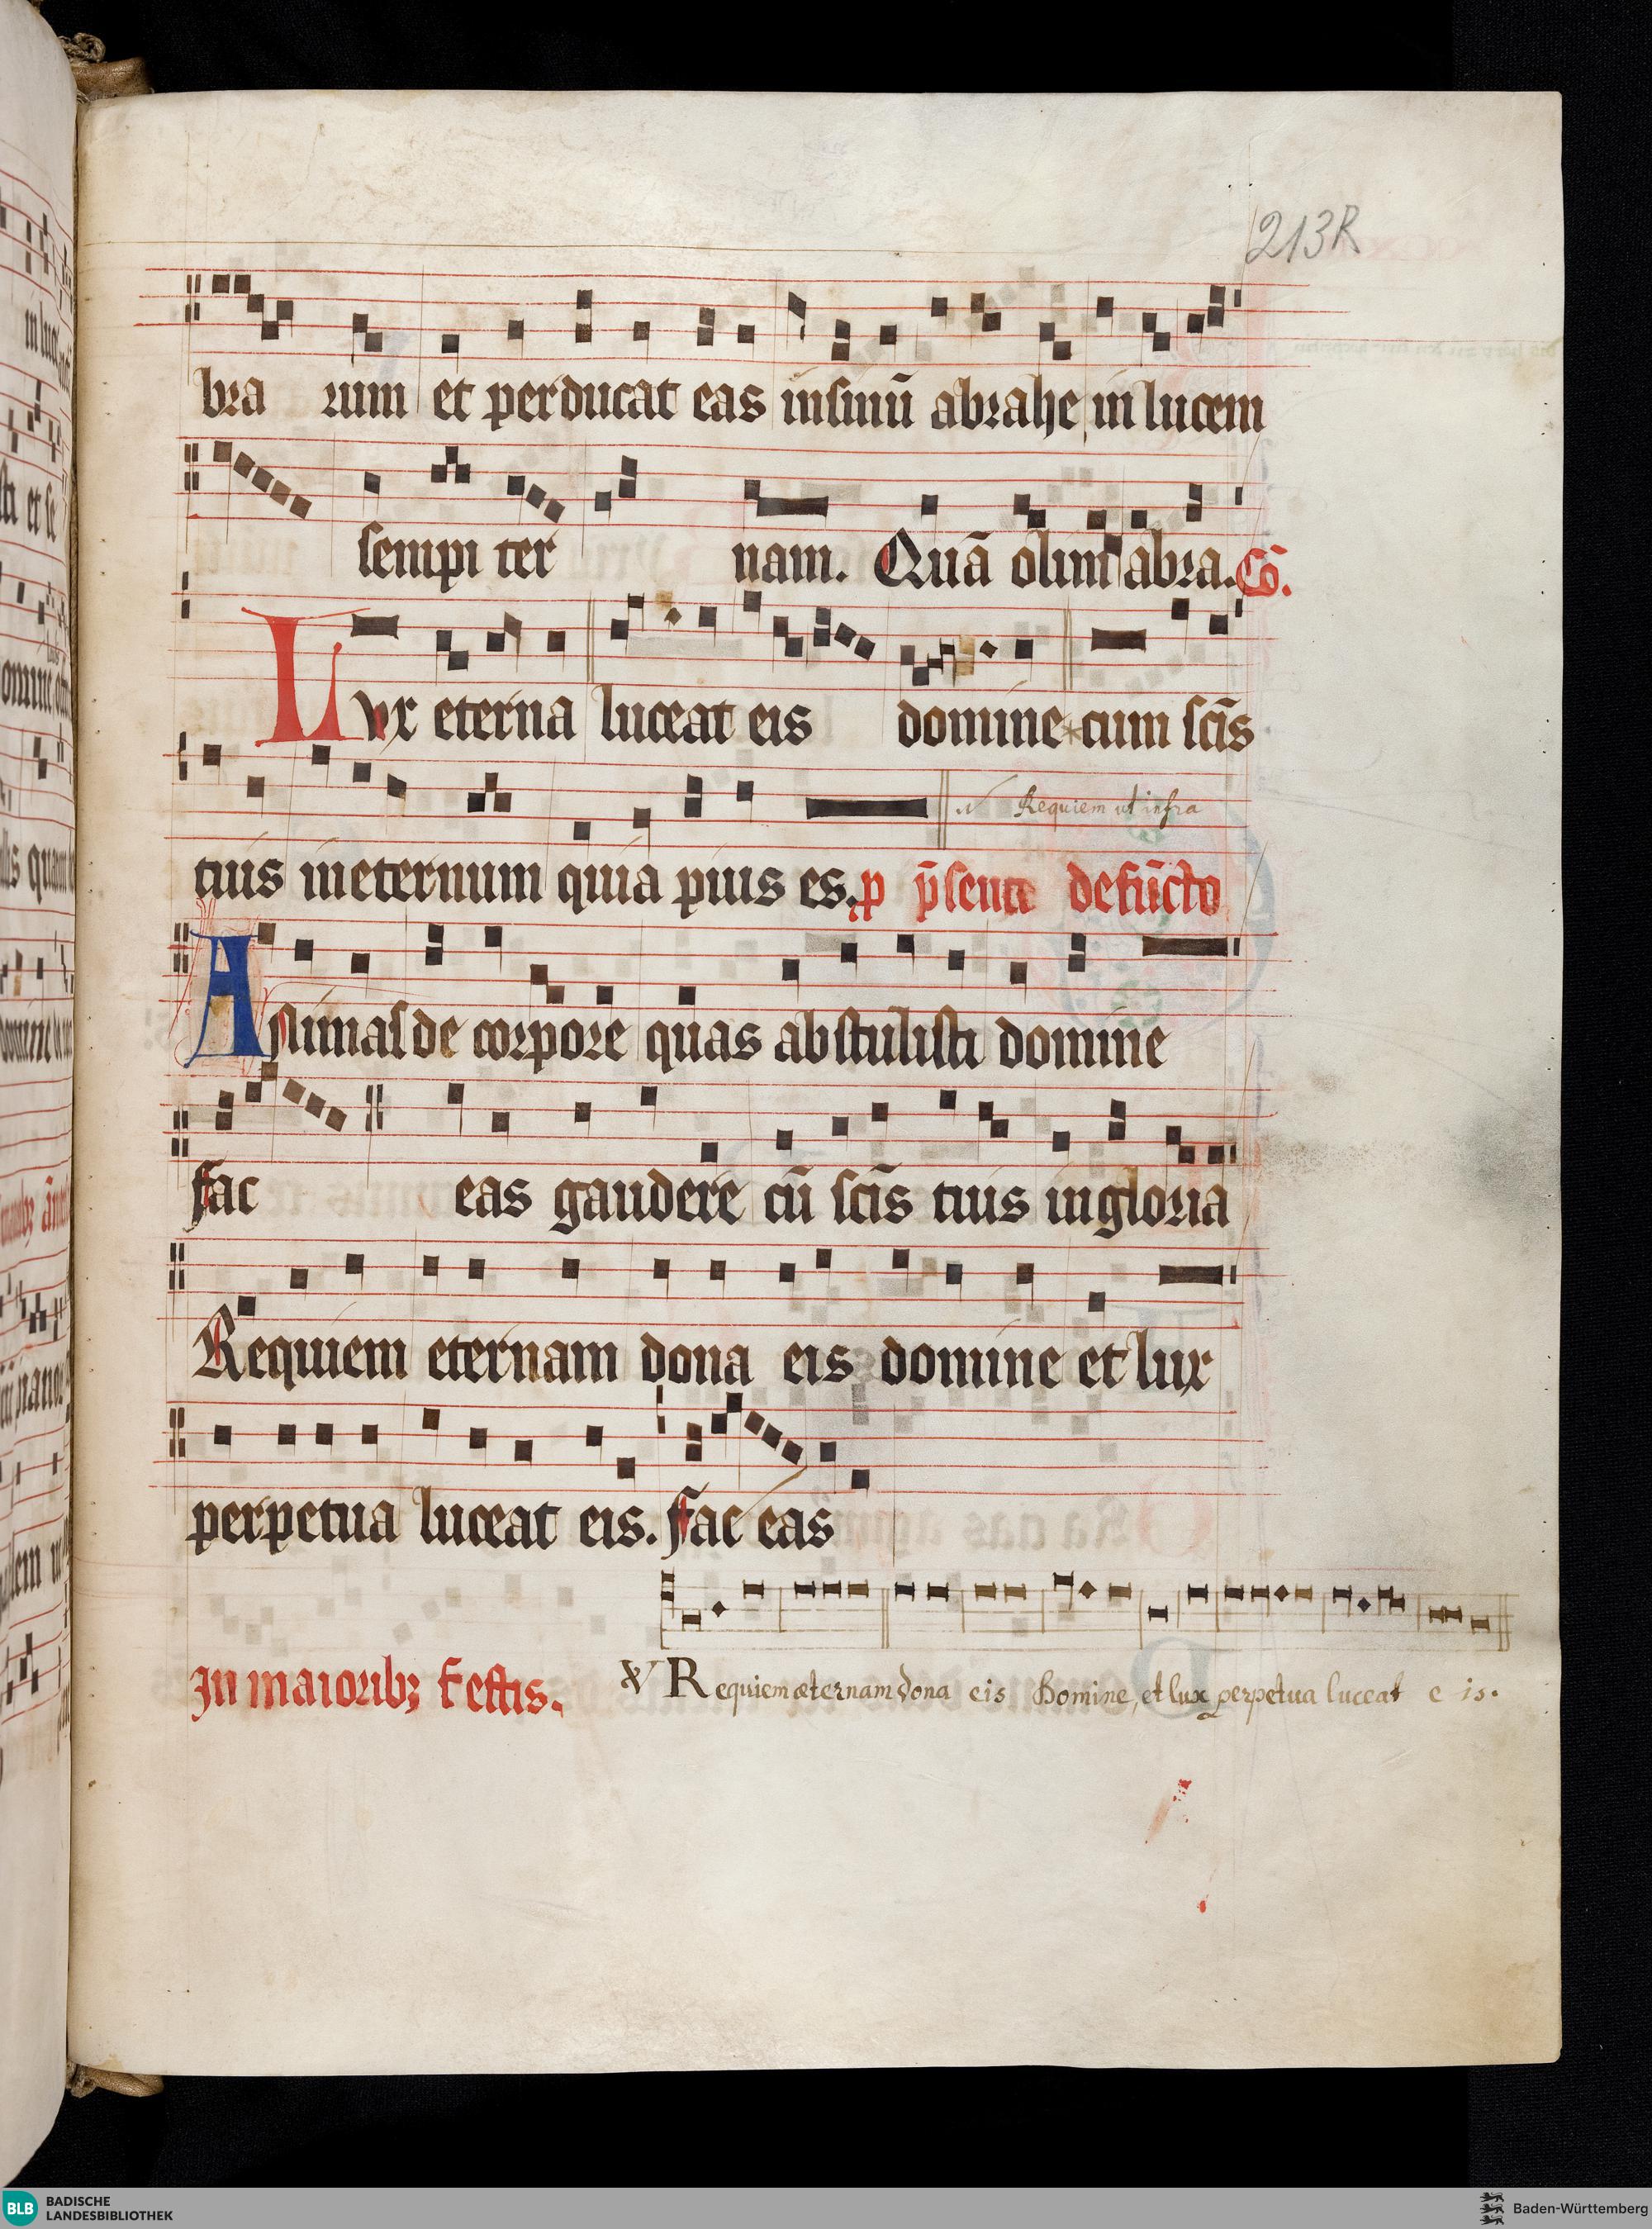 213R
bra rum et perducat eas insinū abrahe in lucem
sempi ter nam. Quā olim abra. Cō.
Lux eterna luceat eis domine cum scīs
Requiem ut infra
tuis ineternum quia pius es. p p̄sente defūcto
Animas de corpore quas abstulisti domine
fac eas gaudere cū scīs tuis in gloria
Requiem eternam dona eis domine et lux
perpetua luceat eis. fac eas
In maioribꝫ festis. ℣ Requiem æternam dona eis Domine, et lux perpetua luceat e is.
BLB BADISCHE LANDESBIBLIOTHEK
Baden-Württemberg